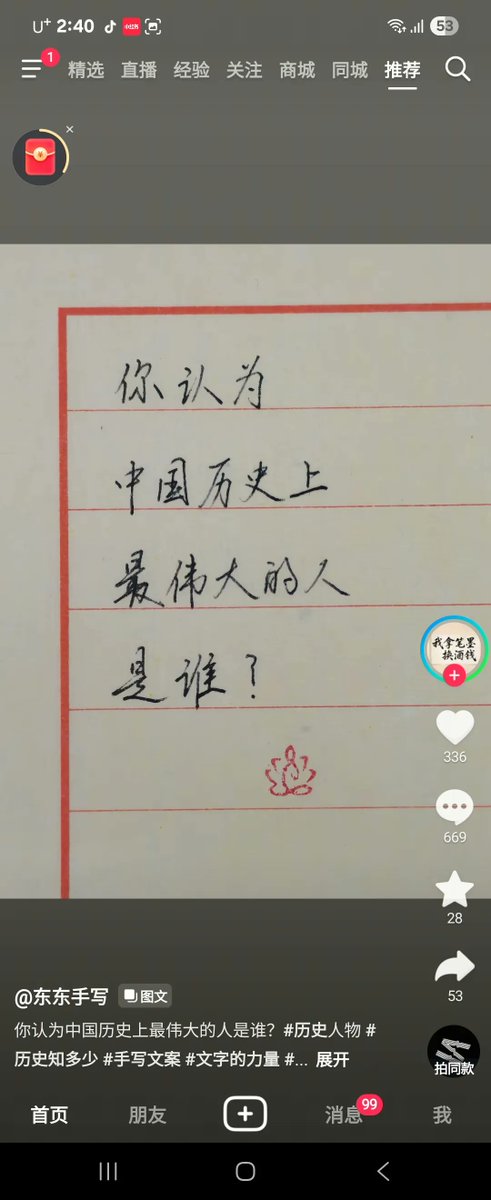 U+ 2:40 小红书 53
1
精选 直播 经验 关注 商城 同城 推荐
你认为
中国历史上
最伟大的人
是谁？
我拿笔墨
换酒钱
336
669
28
53
@东东手写 图文
你认为中国历史上最伟大的人是谁？#历史人物 #
历史知多少 #手写文案 #文字的力量 #... 展开
拍同款
首页 朋友 消息 99 我